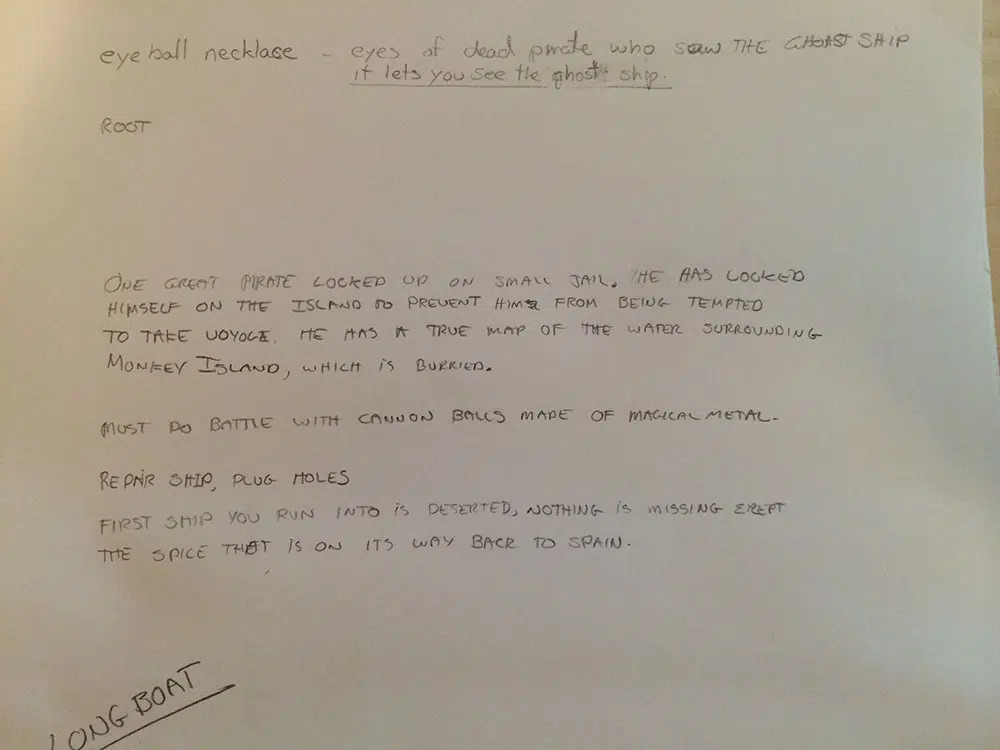 eye ball necklase - eyes of dead pirate who saw THE GHOAST SHIP
it lets you see the ghost ship.
ROOT
ONE GREAT PIRATE LOCKED UP ON SMALL JAIL. HE HAS LOCKED
HIMSELF ON THE ISLAND TO PREVENT HIM FROM BEING TEMPTED
TO TAKE VOYOGE. HE HAS A TRUE MAP OF THE WATER SURROUNDING
MONKEY ISLAND, WHICH IS BURRIED.
MUST DO BATTLE WITH CANNON BALLS MADE OF MAGICAL METAL.
REPAIR SHIP, PLUG HOLES
FIRST SHIP YOU RUN INTO IS DESERTED, NOTHING IS MISSING EXEPT
THE SPICE THAT IS ON ITS WAY BACK TO SPAIN.
LONG BOAT